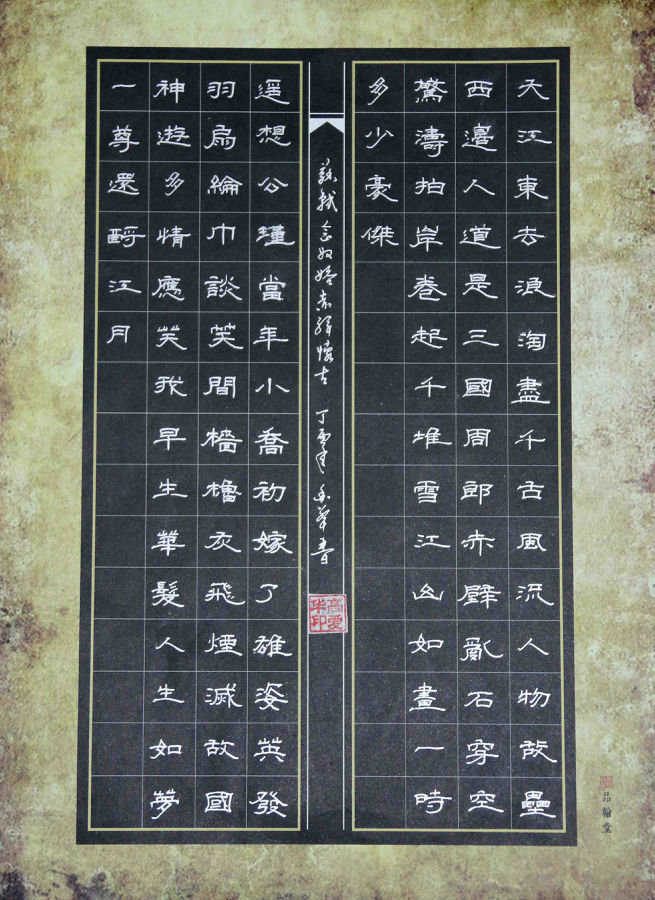 大江東去浪淘盡千古風流人物故壘
西邊人道是三國周郎赤壁亂石穿空
驚濤拍岸卷起千堆雪江山如畫一時
多少豪傑
蘇軾念奴嬌赤壁懷古 丁酉年 愛華書
高愛华印
遥想公瑾當年小喬初嫁了雄姿英發
羽扇綸巾談笑間檣櫓灰飛煙滅故國
神遊多情應笑我早生華髮人生如夢
一尊還酹江月
品翰堂